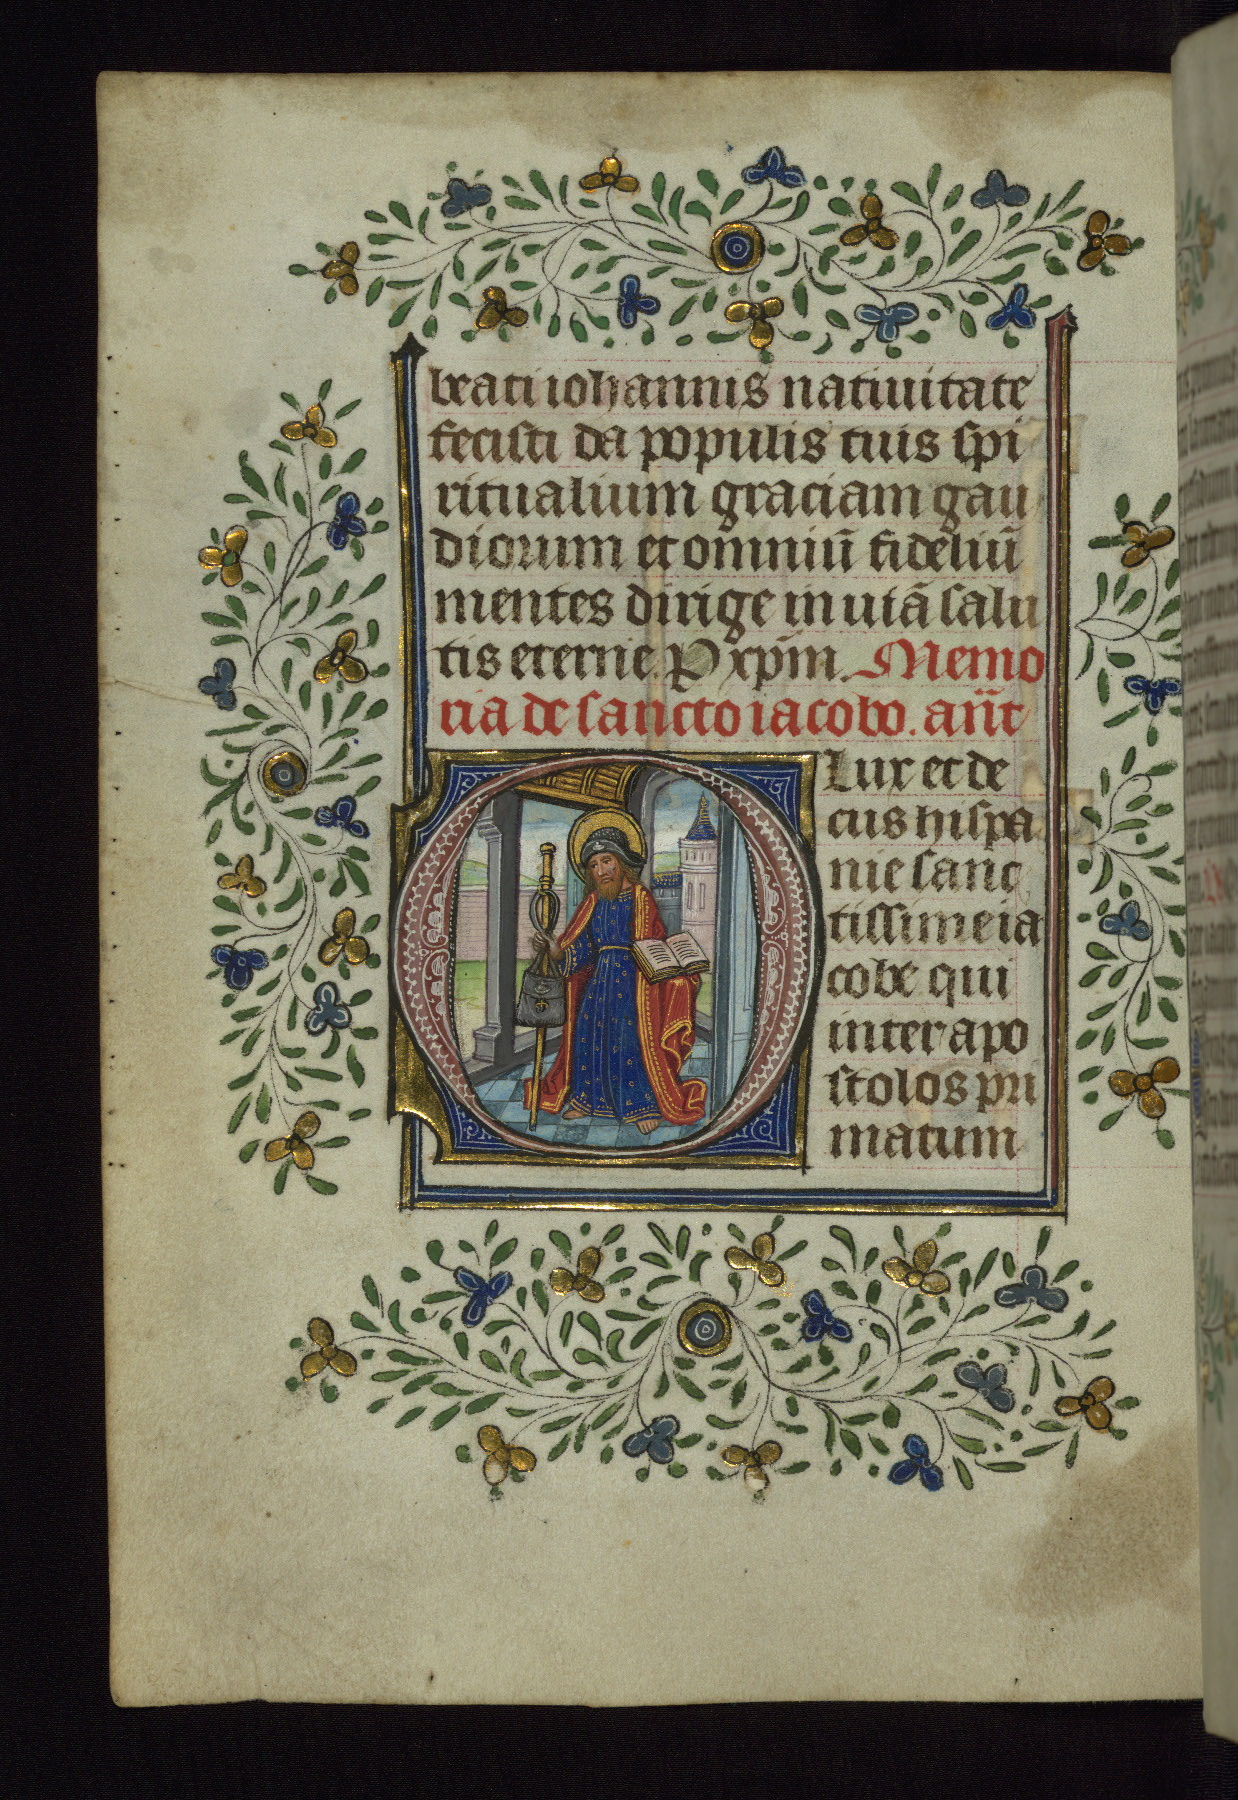 beati iohannis natiuitate
fecisti da populis tuis spi
ritualium graciam gau
diorum et omniū fideliū
mentes dirige in uiā salu
tis eterne. P xp̄m. Memo
ria de sancto iacobo. an̄t
O Lux et de
cus hispa
nie sanc
tissime ia
cobe qui
inter apo
stolos pri
matum